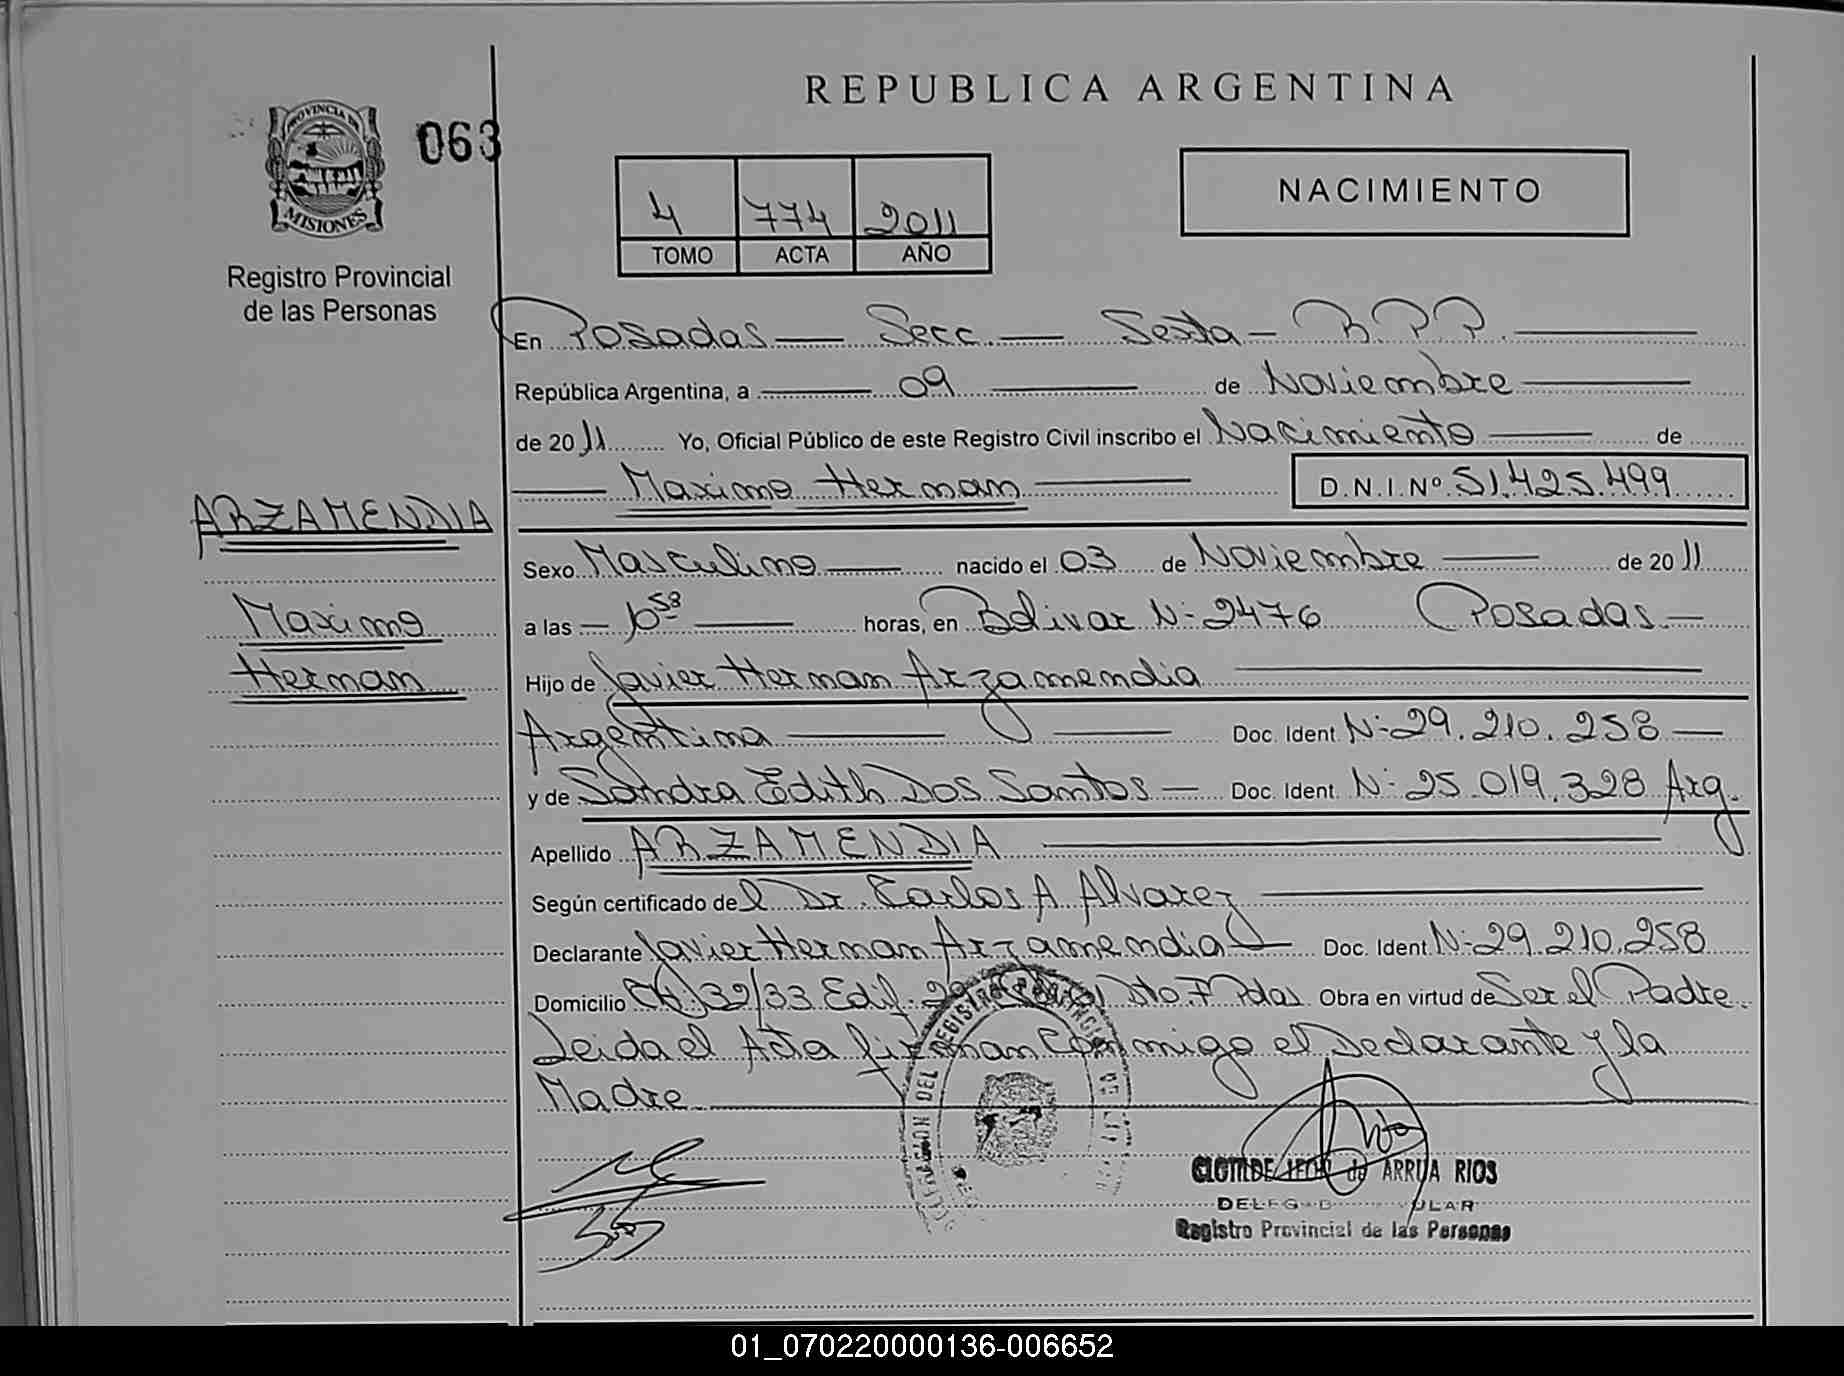 REPUBLICA ARGENTINA
PROVINCIA DE
MISIONES
063
Registro Provincial
de las Personas
4 774 2011
TOMO ACTA AÑO
NACIMIENTO
En Posadas Secc. Sexta R.P.P.
República Argentina, a 09 de Noviembre
de 2011 Yo, Oficial Público de este Registro Civil inscribo el Nacimiento de
Maximo Hernan D.N.I.Nº 51.425.499
ARZAMENDIA
Maximo
Hernan
Sexo Masculino nacido el 03 de Noviembre de 2011
a las horas, en Bolivar Nº 2476 Posadas
Hijo de Javier Hernan Arzamendia
Argentina Doc. Ident. Nº 29.210.258
y de Sandra Edith Dos Santos Doc. Ident. Nº 25.019.328 Arg.
Apellido ARZAMENDIA
Según certificado del Dr. Carlos A Alvarez
Declarante Javier Hernan Arzamendia Doc. Ident. Nº 29.210.258
Domicilio 32/33 Edif. Dto 7 Pdas Obra en virtud de Ser el Padre.
Leida el Acta firman Conmigo el Declarante y la
Madre
CLOTILDE LEON de ARRUA RIOS
Registro Provincial de las Personas
01_070220000136-006652